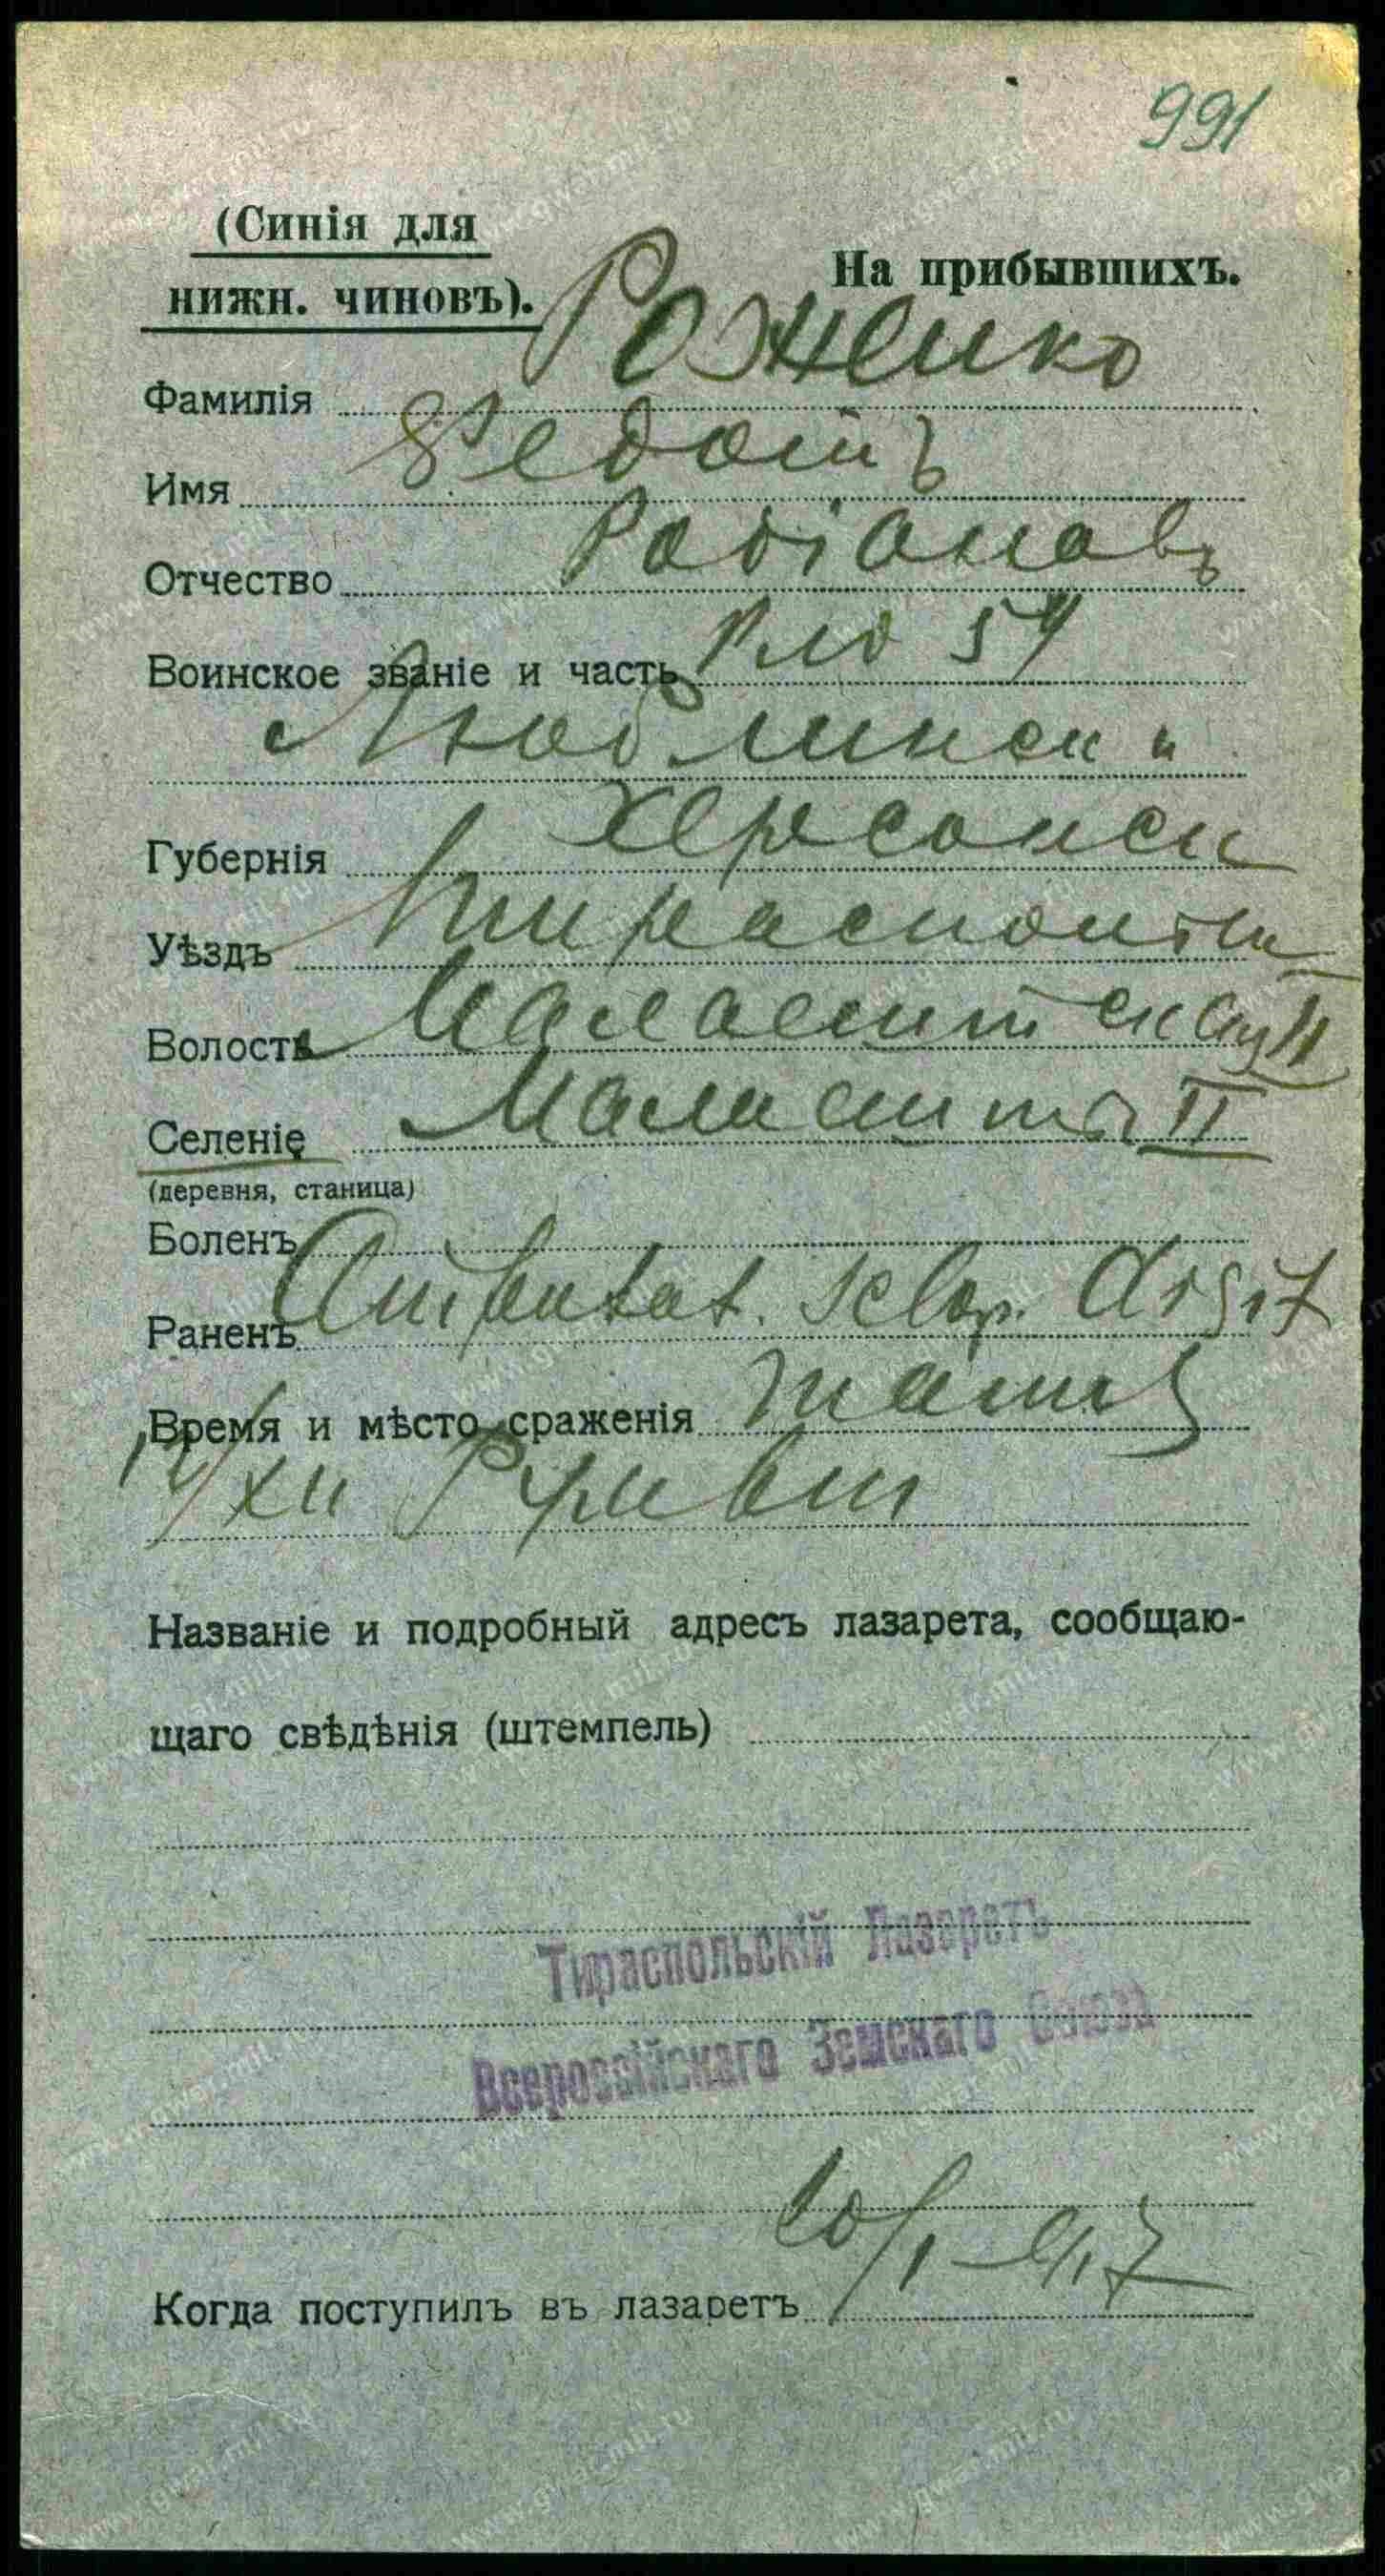 991
(Синія для
нижн. чиновъ).
На прибывшихъ.
Фамилія Роженко
Имя Федотъ
Отчество Родіоновъ
Воинское званіе и часть Ряд 59
Люблинск п
Губернія Херсонск
Уѣздъ Тираспольск
Волость Малаештская II
Селеніе Малаешты II
(деревня, станица)
Боленъ
Раненъ Amputat. sclop. digit
Время и мѣсто сраженія
XII
Названіе и подробный адресъ лазарета, сообщаю-
щаго свѣдѣнія (штемпель)
Тираспольскій Лазаретъ
Всероссійскаго Земскаго Союза
Когда поступилъ въ лазаретъ 20/I 917